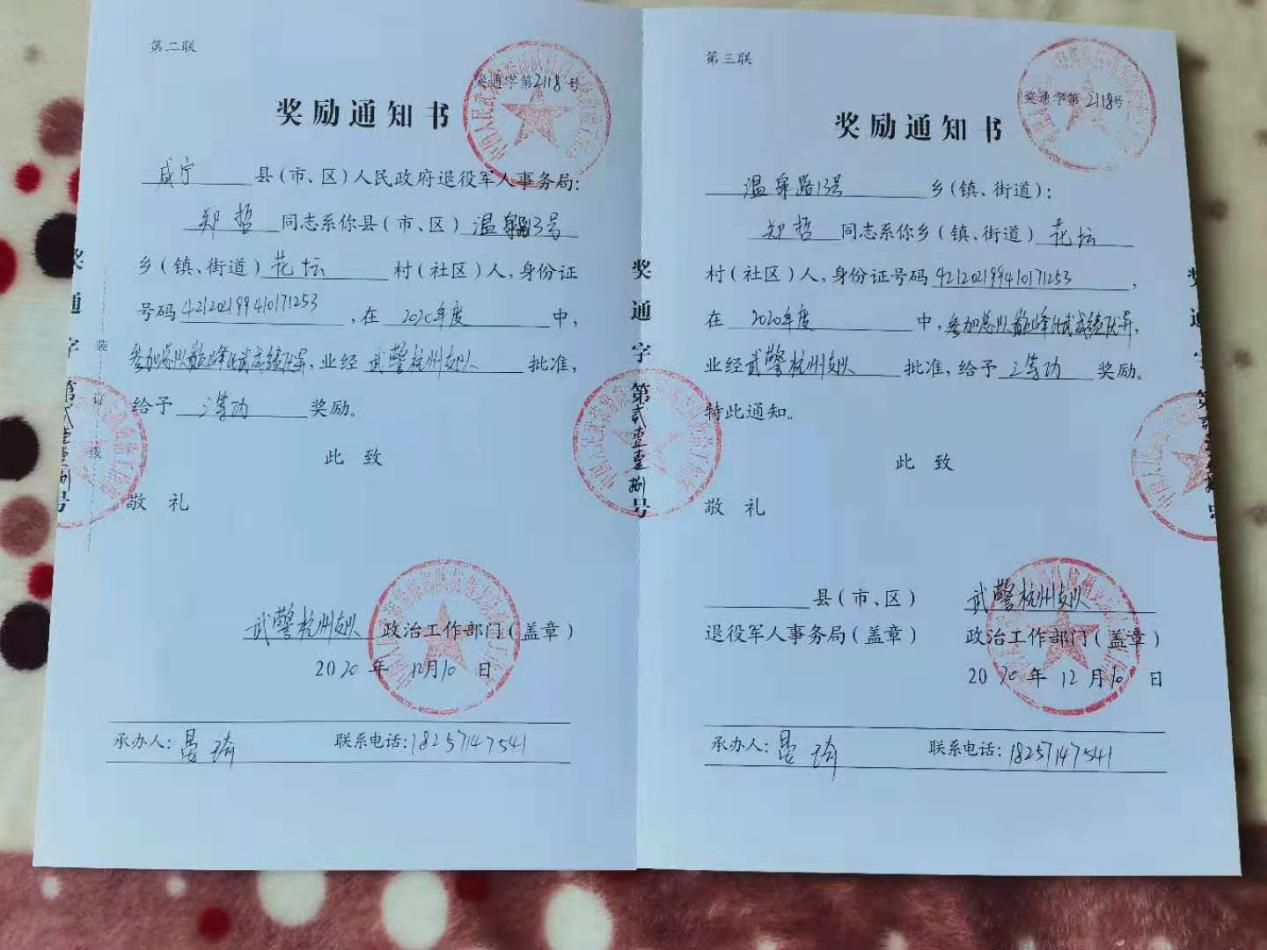 第二联
奖通字第2118号
奖励通知书
咸宁 县(市、区)人民政府退役军人事务局:
郑哲 同志系你县(市、区) 温泉路13号
乡(镇、街道) 花坛 村(社区)人,身份证
号码 421202199410171253 ,在 2020年度 中,
参加总队巅峰比武成绩优异,业经 武警杭州支队 批准,
给予 三等功 奖励。
此 致
敬 礼
武警杭州支队 政治工作部门(盖章)
2020 年 12月10 日
承办人: 联系电话:18257147541
奖通字第贰壹壹捌号
装订线
奖通字第贰壹壹捌号
第三联
奖通字第2118号
奖励通知书
温泉路13号 乡(镇、街道):
郑哲 同志系你乡(镇、街道) 花坛
村(社区)人,身份证号码 421202199410171253 ,
在 2020年度 中,参加总队巅峰比武成绩优异,
业经 武警杭州支队 批准,给予 三等功 奖励。
特此通知。
此 致
敬 礼
县(市、区) 武警杭州支队
退役军人事务局(盖章) 政治工作部门(盖章)
2020 年 12 月 10 日
承办人: 联系电话:18257147541